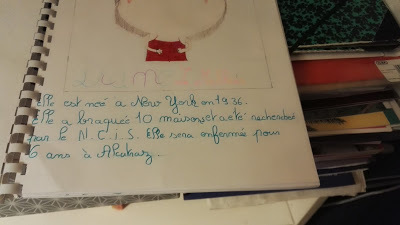 Elle est né a New York en 1936.
Elle a braquée 10 maisons et a été recherchée
par le N.C.i.S. Elle sera enfermée pour
6 ans à Alcatraz.